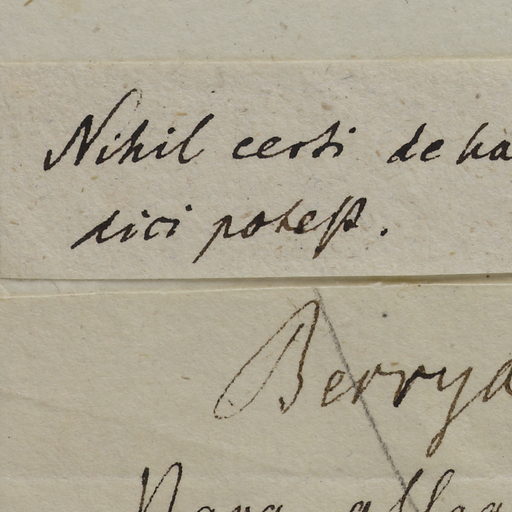 Nihil certi de ha
dici potest.
Berrya